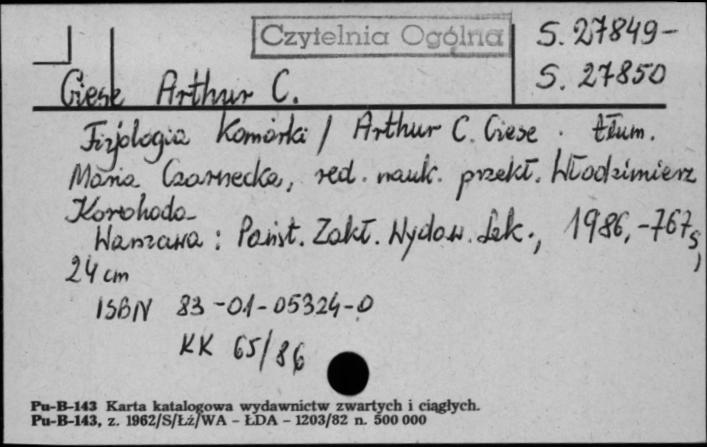 Czytelnia Ogólna
S. 27849-
S. 27850
Giese Arthur C.
Fizjologia Komórki / Arthur C. Giese. tłum.
Maria Czarnecka, red. nauk. przekł. Włodzimierz
Korohoda
Warszawa: Państ. Zakł. Wydaw. Lek., 1986, -767s,
24 cm
ISBN 83-01-05324-0
KK 65/86
Pu-B-143 Karta katalogowa wydawnictw zwartych i ciągłych.
Pu-B-143, z. 1962/S/Łż/WA - ŁDA - 1203/82 n. 500 000